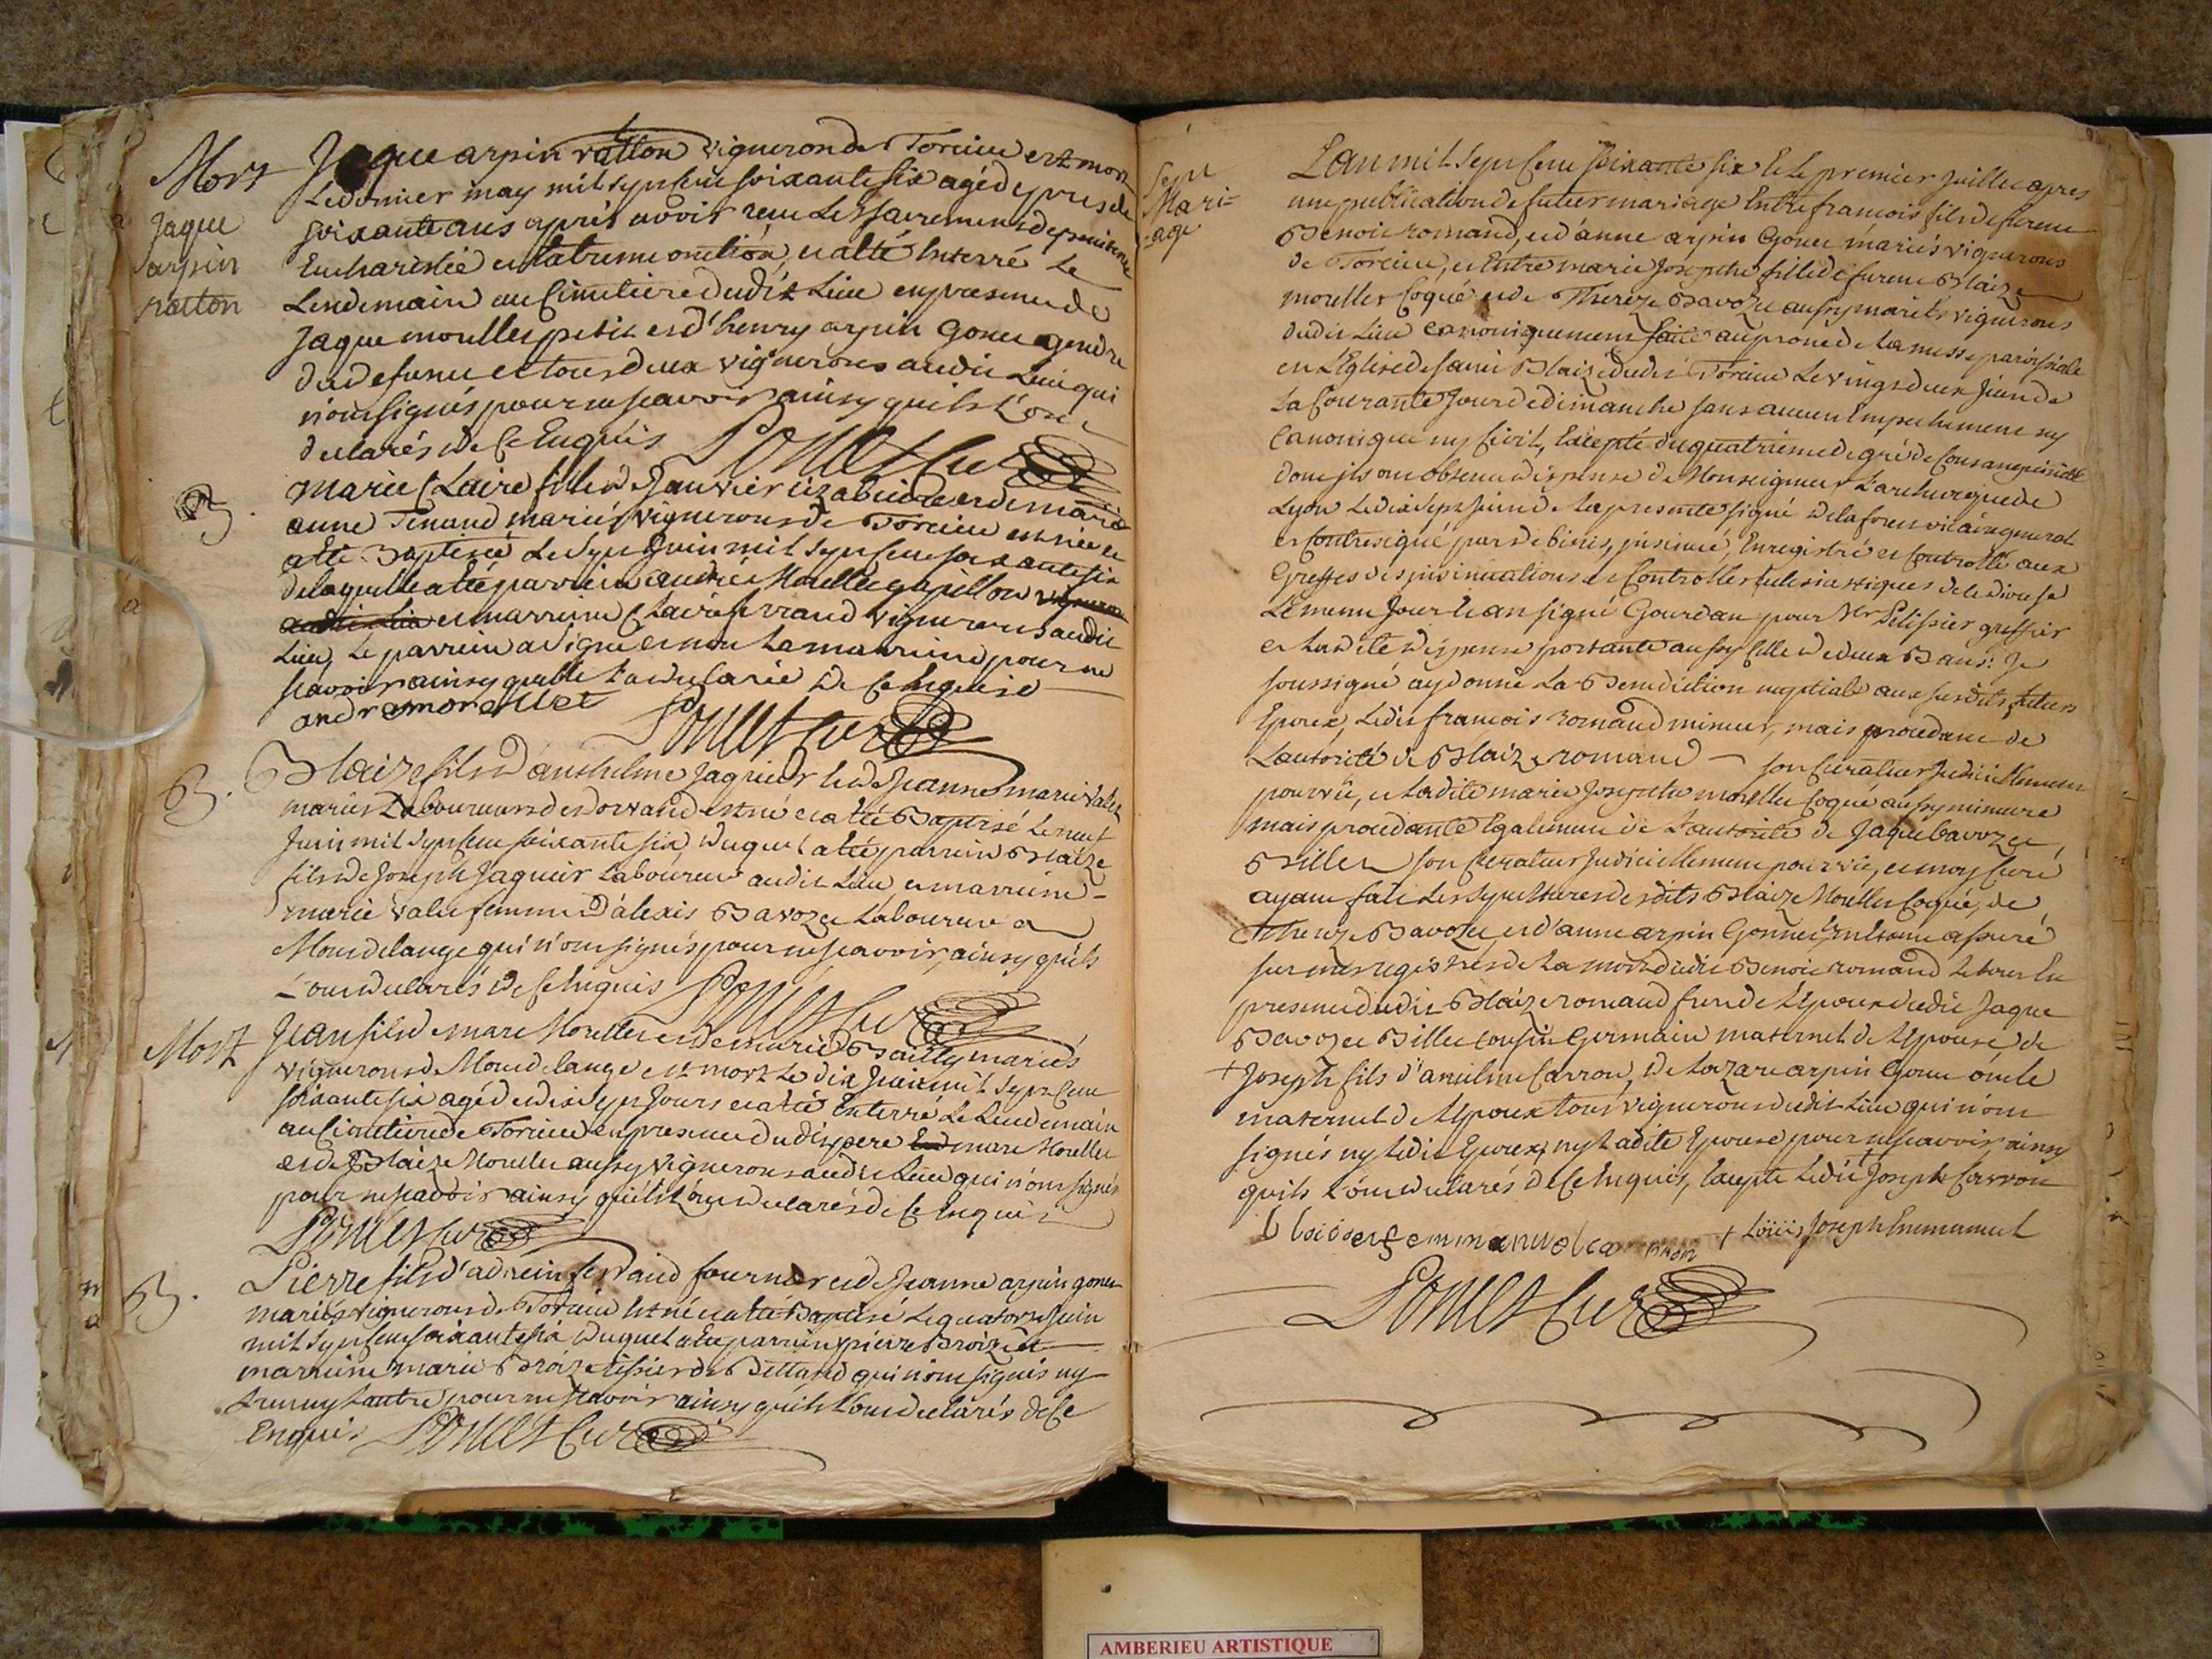 Mort
Jaque
arpin
ratton
Jaque arpin ratton vigneron de Torcieu est mort
Le dernier may mil sept cent soixante six agé d'y pres de
soixante ans aprés avoir recu Les sacremens de penitence
Eucharistie et extreme onction, et a eté Enterré Le
Lendemain au Cimetiere dudit Lieu en presence de
Jaque morellet petit et d'henry arpin Gonet gendre
du defunct et tous deux vignerons audit Lieu qui
n'ont signés pour ne scavoir ainsy quils L'ont
declarés de Ce Enquis Poncet Curé
B.
marie Claire fille de Janvier et de marie
anne Tenand mariés vignerons de Torcieu est née et
a eté Baptisée Le sept Juin mil sept cent soixante six
de laquelle a eté parrein andré Morellet papillon
et marreine Claire ferrand vignerons audit
Lieu, Le parrein a signé et non La marreine pour ne
scavoir ainsy quelle L'a declarée de Ce Enquise
andre morellet Poncet Curé
B.
Blaize fils d'anthelme Jaquier et de Jeanne marie Valet
mariés Laboureurs de dorvand est né et a eté Baptisé Le neuf
Juin mil sept cent soixante six, duquel a eté parrein Blaize
fils de Joseph Jaquier Laboureur audit Lieu et marreine
marie Valet femme d'alexis Bavozet Laboureur a
Mont de lange qui n'ont signés pour ne scavoir, ainsy quils
L'ont declarés de Ce Enquis Poncet Curé
Mort
Jean fils de marc Morellet et de marie Bailly mariés
vignerons de Mont de lange est mort Le dix Juin mil sept cent
soixante six agé de dix sept Jours et a eté Enterré Le Lendemain
au Cimetiere de Torcieu en presence dudit pere marc Morellet
et de Blaize Morellet aussy vignerons audit Lieu qui n'ont signés
pour ne scavoir ainsy quils L'ont declarés de Ce Enquis
Poncet Curé
B.
Pierre fils d'adrein ferrand fournier et de Jeanne arpin gonet
mariés vignerons de Torcieu est né et a eté Baptisé Le quatorze Juin
mil sept cent soixante six duquel a eté parrein pierre Broizat
marreine marie Broizat de Bettand qui n'ont signés ny
L'un ny L'autre pour ne scavoir ainsy quils L'ont declarés de Ce
Enquis Poncet Curé
Sept
Mari=
=age
L'an mil sept cent soixante six et Le premier Juillet apres
une publication de futur mariage Entre francois fils de furent
Benoit romand, et d'anne arpin Gonet mariés vignerons
de Torcieu, et Entre marie Josephte fille de furent Blaize
morellet Coqué et de Thereze Bavozet aussy mariés vignerons
dudit Lieu canoniquement faite au prone de La messe paroissiale
en L'Eglise de saint Blaize dudit Torcieu Le vingt deux Juin de
La Courante Jour de dimanche sans aucun Empechement ny
Canonique ny Civil, Excepté du quatrieme degré de Consanguinité
dont ils ont obtenu dispense de Monseigneur L'archeveque de
Lyon Le dix sept Juin de La presente signé vicaire general
et Contresigné par de binis, insinué, Enregistré et Controllé aux
Greffes des insinuations et Controlles Eclesiastiques de Ce diocese
Le meme Jour et an signé Gourdan pour Mr Pelissier greffier
et Ladite dispense portante aussy Celle de deux Bans: Je
soussigné ay donné La Benediction nuptiale aux susdits futurs
Epoux, Ledit francois romand mineur, mais procedant de
L'autorité de Blaize romand son Curateur Judiciellement
pourvu, et Ladite marie Josephte morellet Coqué aussy mineure
mais procedante Egalement de L'autorité de Jaque Bavozet
Billet son Curateur Judiciellement pourvu, et moy Curé
ayant fait Les sepultures desdits Blaize Morellet Coqué, de
Thereze Bavozet, et d'anne arpin Gonnet, assuré
sur mes registres de La mort dudit Benoit romand Le tout En
presence dudit Blaize romand frere de L'Epoux dudit Jaque
Bavozet Billet cousin Germain maternel de L'Epouse de
+ Joseph fils d'anthelme Carron, de Lazare arpin Gonet oncle
maternel de L'Epoux tous vignerons dudit Lieu qui n'ont
signés ny Ledit Epoux, ny Ladite Epouse pour ne scavoir, ainsy
quils L'ont declarés de Ce Enquis, Excepté Ledit Joseph Carron
+ Loüis Joseph Emmanuel
Poncet Curé
AMBERIEU ARTISTIQUE